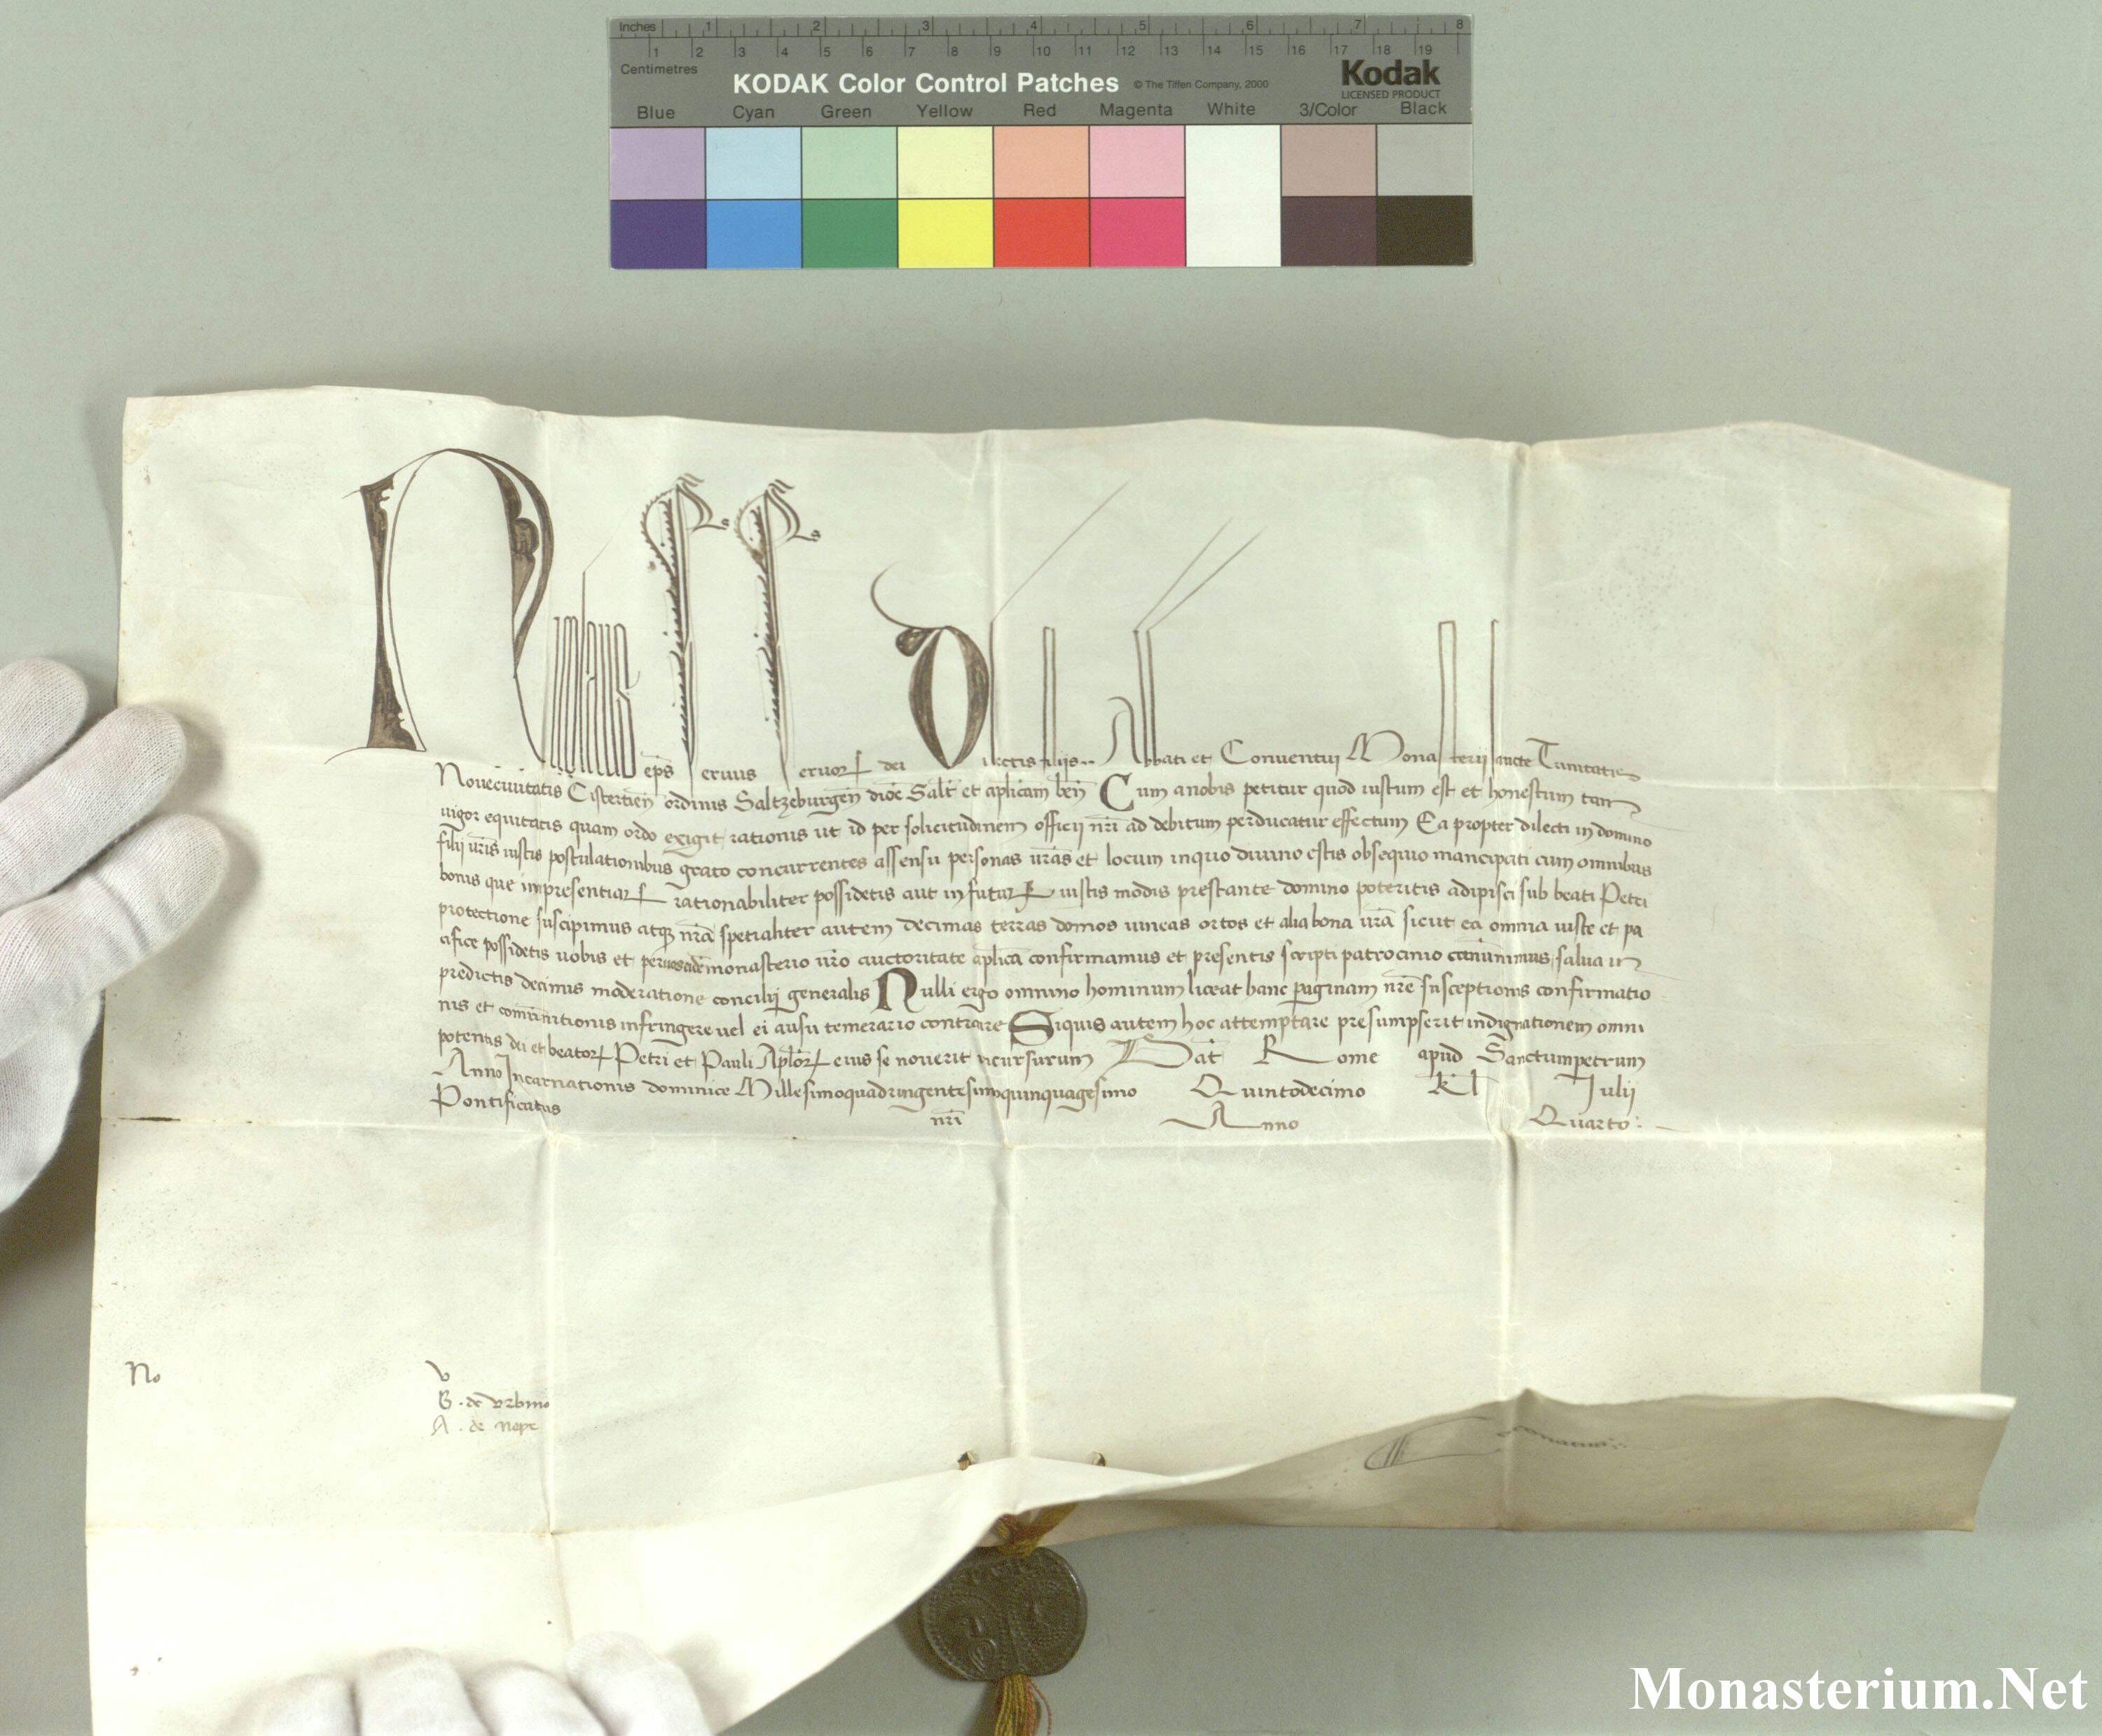 Inches 1 2 3 4 5 6 7 8
1 2 3 4 5 6 7 8 9 10 11 12 13 14 15 16 17 18 19
Centimetres
KODAK Color Control Patches © The Tiffen Company, 2000 Kodak
LICENSED PRODUCT
Blue Cyan Green Yellow Red Magenta White 3/Color Black
Nicolaus ep̄s seruus seruoꝝ dei Dilectis filijs .. Abbati et Conventui Monasterij sancte Trinitatis
Novecivitatis Cistertien̄ ordinis Saltzeburgen̄ dioc̄ Salt̄ et ap̄licam ben̄ Cum a nobis petitur quod iustum est et honestum tam
uigor equitatis quam ordo exigit rationis ut id per solicitudinem officij nr̄i ad debitum perducatur effectum Ea propter dilecti in domino
filij ur̄is iustis postulationibus grato concurrentes assensu personas ur̄as et locum in quo diuino estis obsequio mancipati cum omnibus
bonis que impresentiaꝝ rationabiliter possidetis aut in futuꝝ iustis modis prestante domino poteritis adipisci sub beati Petri
protectione suscipimus atqꝫ nr̄a spetialiter autem decimas terras domos uineas ortos et alia bona ur̄a sicut ea omnia iuste et pa
cifice possidetis uobis et per uos eidem monasterio ur̄o auctoritate ap̄lica confirmamus et presentis scripti patrocinio com̄unimus, salua in
predictis decimis moderatione concilij generalis Nulli ergo omnino hominum liceat hanc paginam nr̄e susceptionis confirmatio
nis et com̄unitionis infringere uel ei ausu temerario contraire Siquis autem hoc attemptare presumpserit indignationem omni
potentis dei et beatoꝝ Petri et Pauli Ap̄loꝝ eius se nouerit incursurum Dat̄ Rome apud Sanctumpetrum
Anno Incarnationis dominice Millesimoquadringentesimoquinquagesimo Quintodecimo Kl̄ Iulij
Pontificatus nr̄i Anno Quarto :
No
V
B . de Vrbino
A . de Nepe
Monasterium.Net